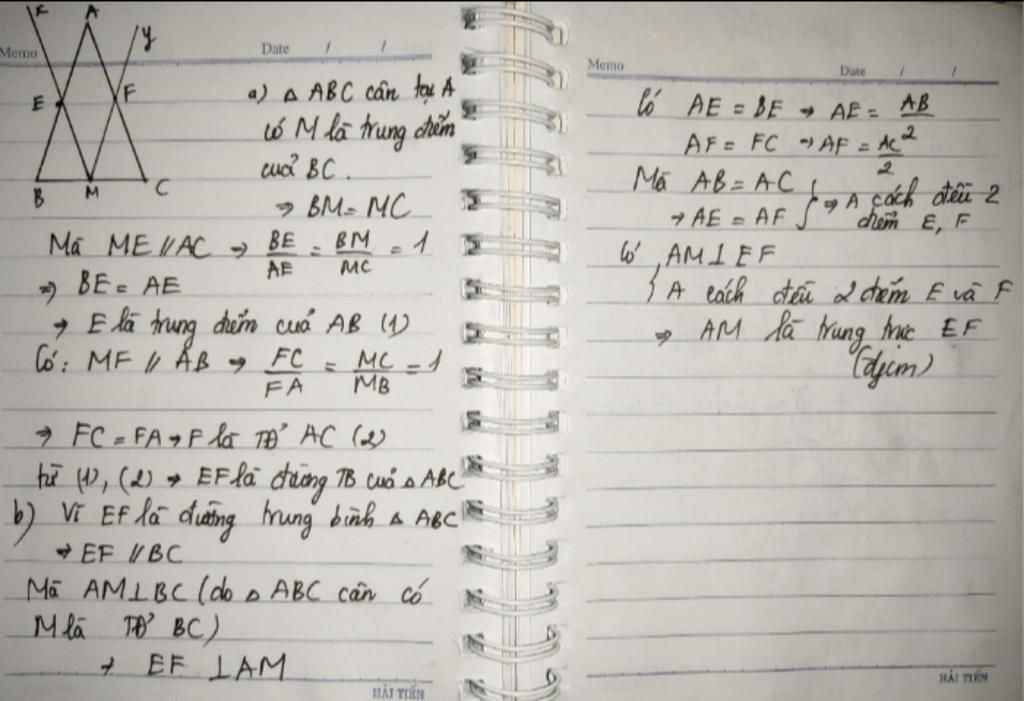 x
A
y
Memo
Date / /
E
F
B
M
C
a) △ ABC cân tại A
có M là trung điểm
của BC.
⇒ BM = MC
Mà ME // AC → BE/AE = BM/MC = 1
⇒ BE = AE
→ E là trung điểm của AB (1)
Có: MF // AB → FC/FA = MC/MB = 1
→ FC = FA → F là TĐ' AC (2)
từ (1), (2) → EF là đường TB của △ ABC
b) Vì EF là đường trung bình △ ABC
→ EF // BC
Mà AM ⊥ BC (do △ ABC cân có
M là TĐ' BC)
→ EF ⊥ AM
HẢI TIẾN
Memo
Date / /
Có AE = BE → AE = AB/2
AF = FC → AF = AC/2
Mà AB = AC
→ AE = AF } ⇒ A cách đều 2 điểm E, F
Có { AM ⊥ EF
A cách đều 2 điểm E và F
⇒ AM là trung trực EF
(đpcm)
HẢI TIẾN